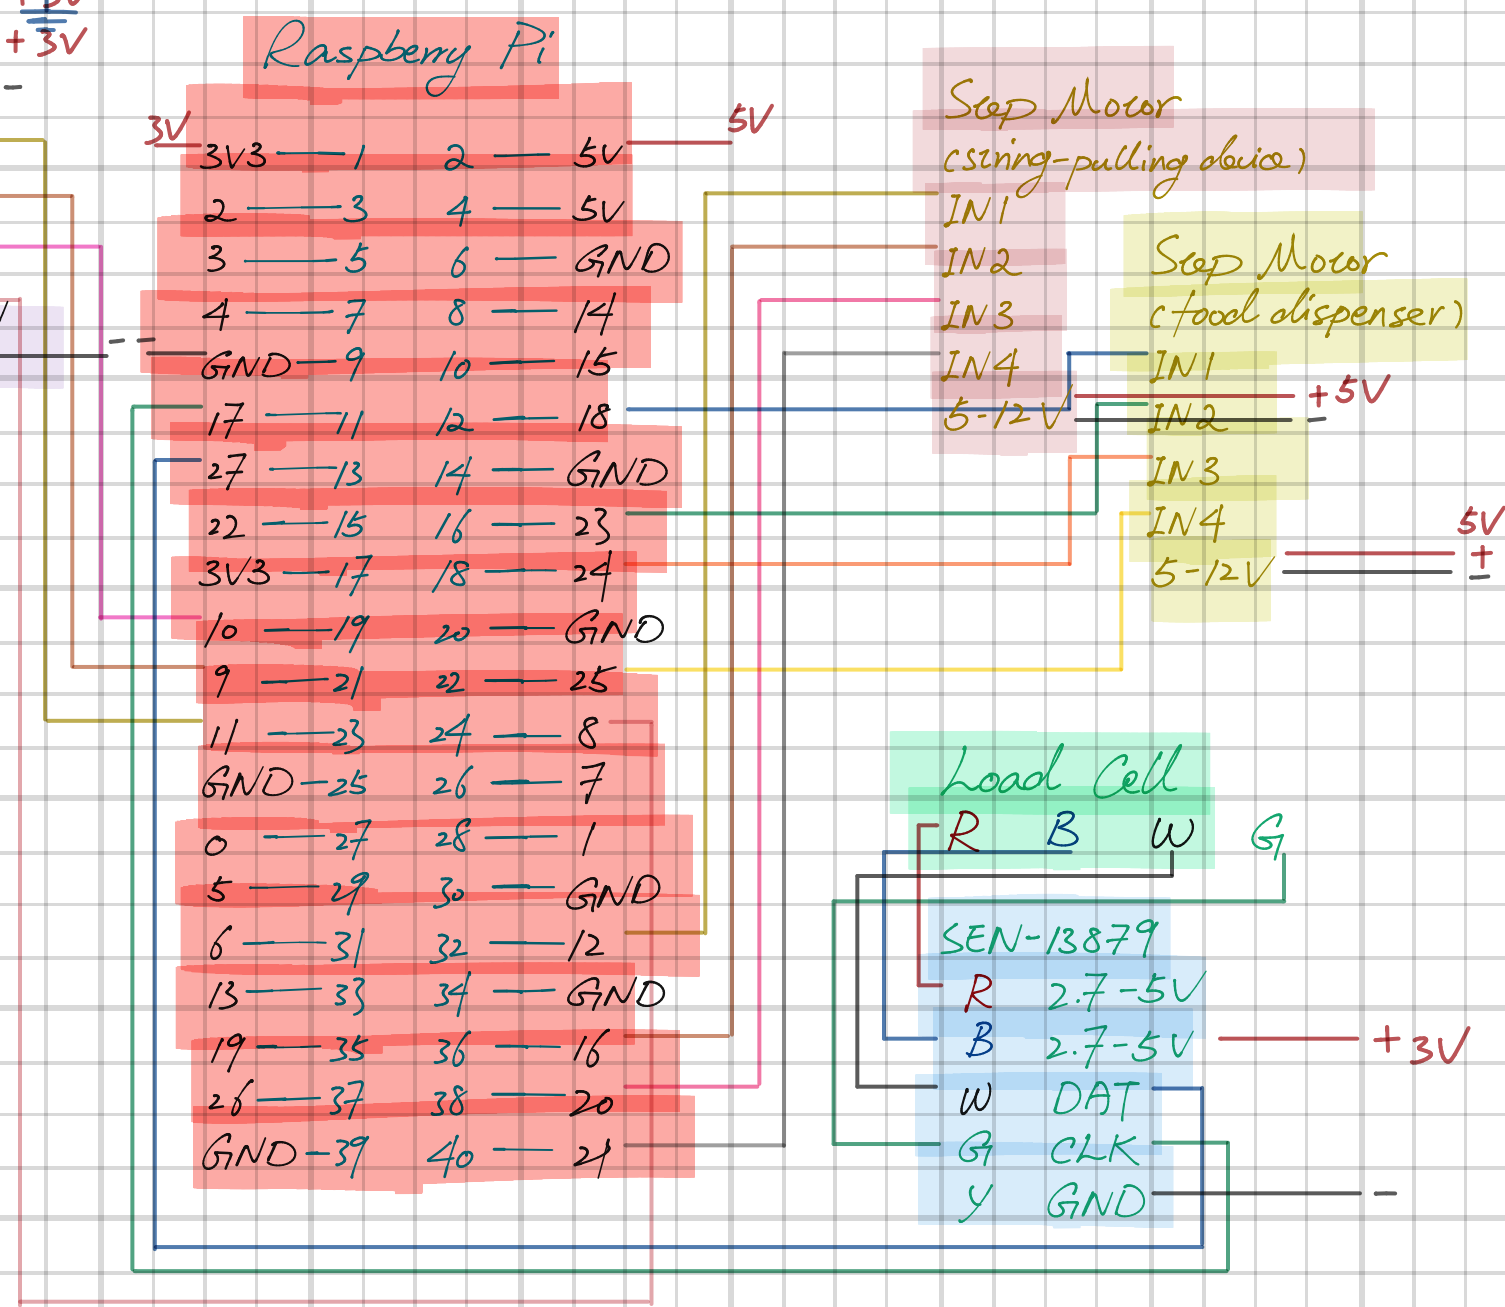 +3V
-
Raspberry Pi
3V
5V
3V3 — 1 2 — 5V
2 — 3 4 — 5V
3 — 5 6 — GND
4 — 7 8 — 14
GND — 9 10 — 15
17 — 11 12 — 18
27 — 13 14 — GND
22 — 15 16 — 23
3V3 — 17 18 — 24
10 — 19 20 — GND
9 — 21 22 — 25
11 — 23 24 — 8
GND — 25 26 — 7
0 — 27 28 — 1
5 — 29 30 — GND
6 — 31 32 — 12
13 — 33 34 — GND
19 — 35 36 — 16
26 — 37 38 — 20
GND — 39 40 — 21
Step Motor
(string-pulling device)
IN1
IN2
IN3
IN4
5-12V
+5V
-
Step Motor
(food dispenser)
IN1
IN2
IN3
IN4
5-12V
5V
+
-
Load Cell
R B W G
SEN-13879
R 2.7-5V
B 2.7-5V +3V
W DAT
G CLK
Y GND -